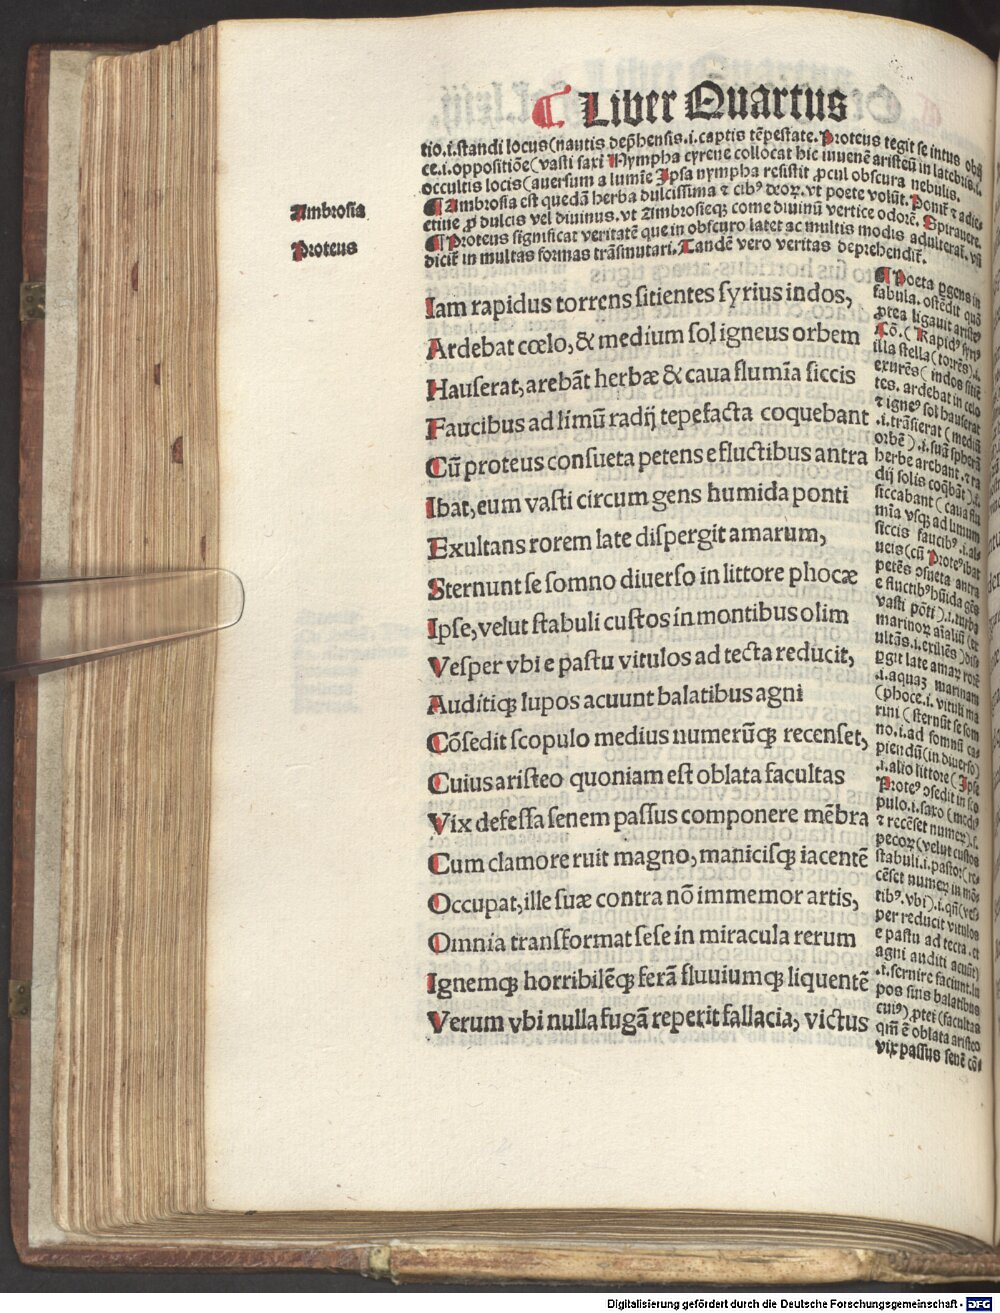 ¶ Liber Quartus
tio.i.standi locus(nautis dephensis.i.captis tēpestate. Proteus tegit se intus obij
ce.i.oppositiōe(vasti saxi Nympha cyrene collocat hic iuuenē aristeū in latebris.i.
occultis locis(auersum a lumīe Ipsa nympha resistit ꝓcul obscura nebulis.
¶ Ambrosia est quedā herba dulcissima ⁊ cibꝰ deoꝝ. vt poete volūt. Poniť ⁊ adie
ctiue ꝓ dulcis vel diuinus. vt Ambrosieqꝫ come diuinū vertice odorē. Spirauere.
¶ Proteus significat veritatē que in obscuro latet ac multis modis adulterať. vñ
diciť in multas formas trāsmutari. Tandē vero veritas deprehendiť.
Ambrosia
Proteus
Iam rapidus torrens sitientes syrius indos,
Ardebat cœlo, & medium sol igneus orbem
Hauserat, arebāt herbæ & caua flumīa siccis
Faucibus ad limū radij tepefacta coquebant
Cū proteus consueta petens e fluctibus antra
Ibat, eum vasti circum gens humida ponti
Exultans rorem late dispergit amarum,
Sternunt se somno diuerso in littore phocæ
Ipse, velut stabuli custos in montibus olim
Vesper vbi e pastu vitulos ad tecta reducit,
Auditiqꝫ lupos acuunt balatibus agni
Cōsedit scopulo medius numerūqꝫ recenset,
Cuius aristeo quoniam est oblata facultas
Vix defessa senem passus componere mēbra
Cum clamore ruit magno, manicisqꝫ iacentē
Occupat, ille suæ contra nō immemor artis,
Omnia transformat sese in miracula rerum
Ignemqꝫ horribilēqꝫ ferā fluuiumqꝫ liquentē
Verum vbi nulla fugā reperit fallacia, victus
¶ Poeta ꝑgens in
fabula. ostēdit quō
ꝓtea ligauit aristeꝰ
Cō. ( Rapidꝰ syriꝰ
illa stella (torrēs).i.
exurēs ( indos sitiē
tes. ardebat in celo
⁊ igneꝰ sol hauserat
.i. trāsierat (mediū
orbē).i. suā spherā
herbe arebant. ⁊ ra
dij solis coqbāt).i.
siccabant ( caua flu
mīa vsqꝫ ad limum
siccis faucibꝰ .i. al
ueis (cū Proteꝰ ibat
petēs ɔsueta antra
e fluctibꝰ hūida gēs
vasti pōti).i. turba
marinoꝝ aīaliū (ex
ultās.i. exiliēs) dis
ꝑgit late amaꝝ rorē
.i. aquaꝫ marinam
(phoce.i. vituli ma
rini ( sternūt se som
no.i. ad somnū ca
piendū (in diuerso)
.i. alio littore ( Ipse
Proteꝰ ɔsedit in sco
pulo.i. saxo (mediꝰ
⁊ recēset numeꝝ).s.
pecoꝝ (velut custos
stabuli.i. pastor( re
cēset numeꝝ in mō
tibꝰ. vbi).i. qñ(ves
per reducit vitulos
e pastu ad tecta. et
agni auditi acuūt)
.i. seruire faciunt. lu
pos suis balatibus
cuiꝰ) ꝓtei (facultas
qm̄ ē oblata aristeo
vix passus senē cō
Digitalisierung gefördert durch die Deutsche Forschungsgemeinschaft - DFG